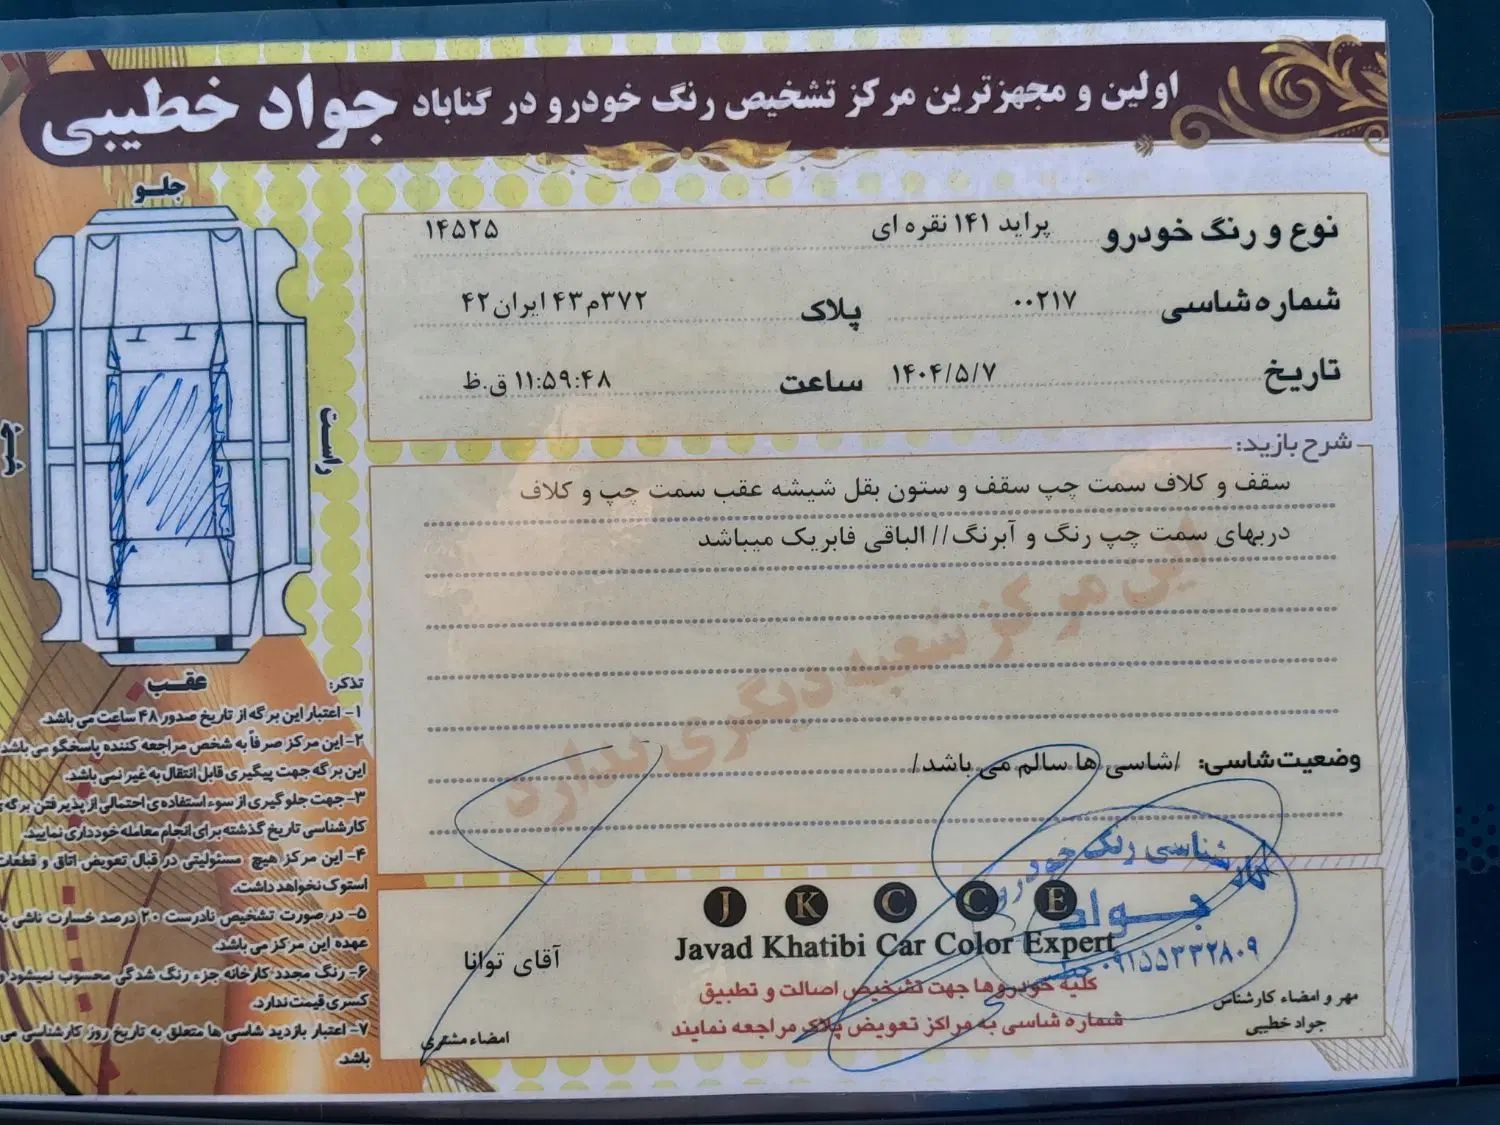 اولین و مجهزترین مرکز تشخیص رنگ خودرو در گناباد جواد خطیبی
جلو
راست
چپ
عقب
نوع و رنگ خودرو پراید ۱۴۱ نقره ای ۱۴۵۲۵
شماره شاسی ۰۰۲۱۷ پلاک ۳۷۲م۴۳ ایران۴۲
تاریخ ۱۴۰۴/۵/۷ ساعت ۱۱:۵۹:۴۸ ق.ظ
شرح بازید:
سقف و کلاف سمت چپ سقف و ستون بقل شیشه عقب سمت چپ و کلاف
دربهای سمت چپ رنگ و آبرنگ// الباقی فابریک میباشد
این مرکز شعبه دیگری ندارد
وضعیت شاسی: /شاسی ها سالم می باشد/
تذکر:
۱- اعتبار این برگه از تاریخ صدور ۴۸ ساعت می باشد.
۲- این مرکز صرفاً به شخص مراجعه کننده پاسخگو می باشد
این برگه جهت پیگیری قابل انتقال به غیر نمی باشد.
۳- جهت جلوگیری از سوء استفاده ی احتمالی از پذیرفتن برگه ی
کارشناسی تاریخ گذشته برای انجام معامله خودداری نمایید.
۴- این مرکز هیچ مسئولیتی در قبال تعویض اتاق و قطعات
استوک نخواهد داشت.
۵- در صورت تشخیص نادرست ۲۰ درصد خسارت ناشی به
عهده این مرکز می باشد.
۶- رنگ مجدد کارخانه جزء رنگ شدگی محسوب نمیشود و
کسری قیمت ندارد.
۷- اعتبار بازدید شاسی ها متعلق به تاریخ روز کارشناسی می
باشد.
J K C C E
Javad Khatibi Car Color Expert
کلیه خودروها جهت تشخیص اصالت و تطبیق
شماره شاسی به مراکز تعویض پلاک مراجعه نمایند
آقای توانا
امضاء مشتری
کارشناسی رنگ خودرو
جواد
خطیبی ۰۹۱۵۵۳۳۲۸۰۹
مهر و امضاء کارشناس
جواد خطیبی